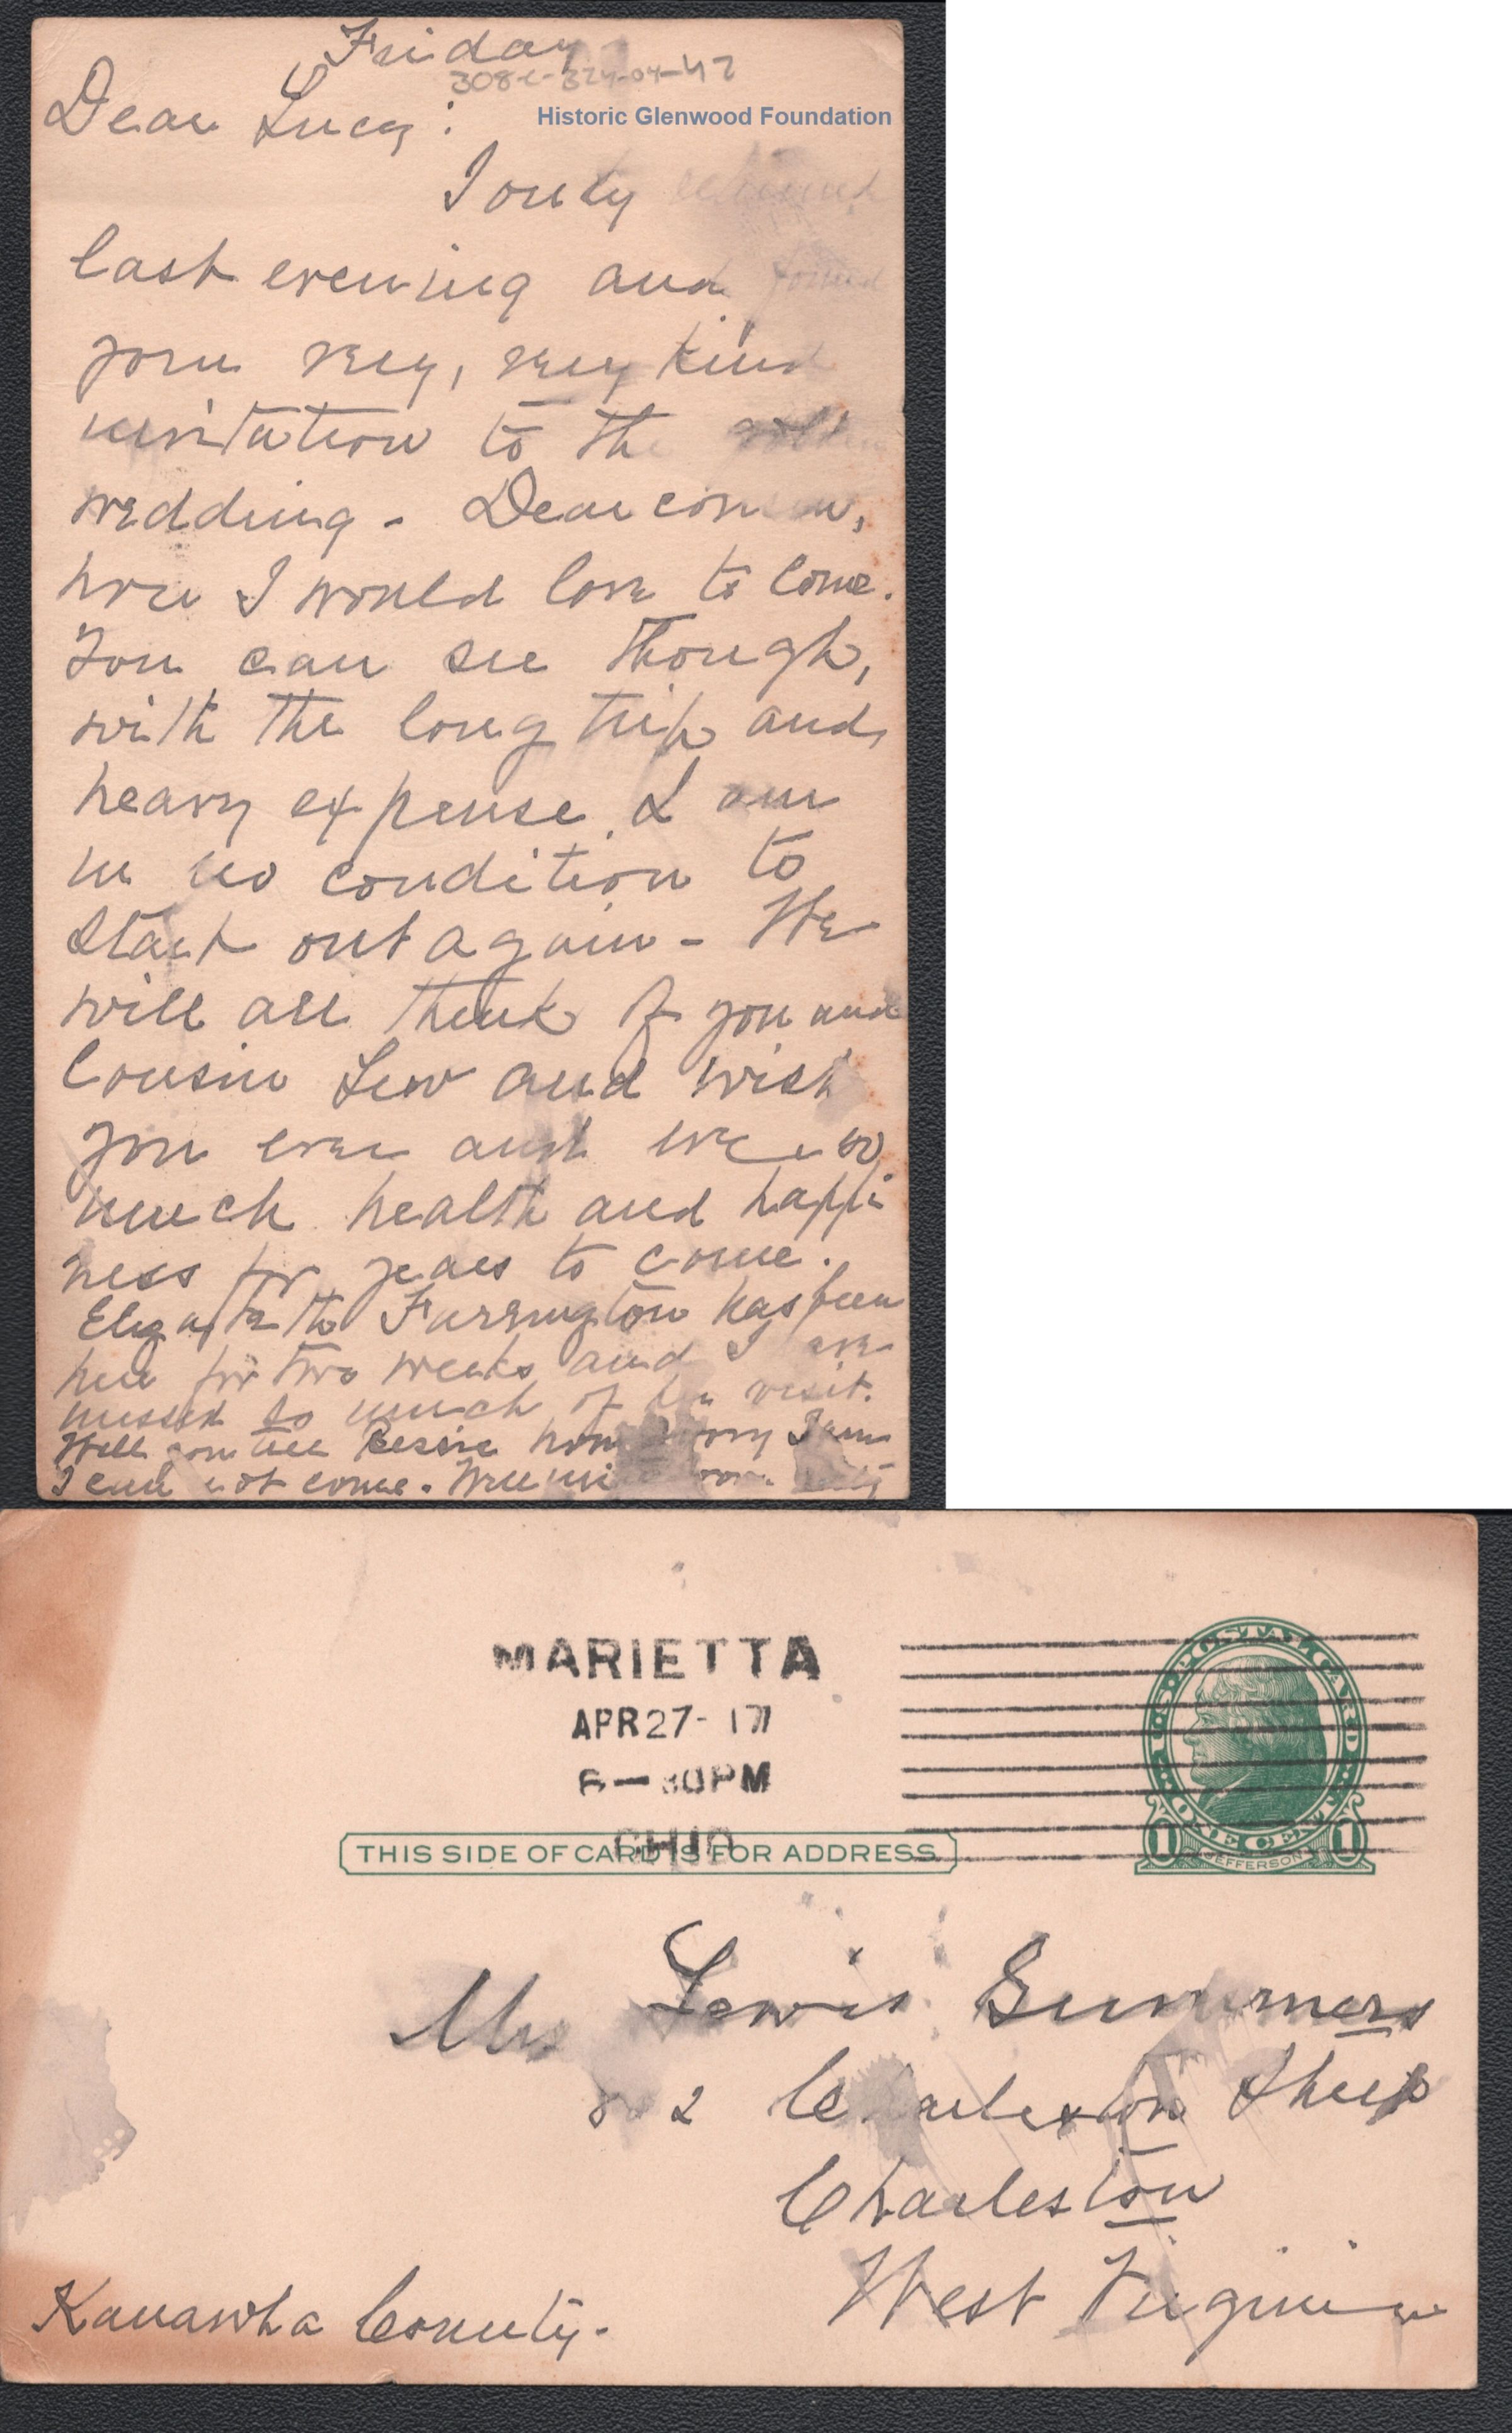 Friday
308-C-324-04-42
Dear Lucy:
Historic Glenwood Foundation
I only returned
last evening and found
your very, very kind
invitation to the golden
wedding - Dear cousin,
how I would love to come.
You can see though,
with the long trip and
heavy expense I am
in no condition to
start out again - We
will all think of you and
Cousin Lew and wish
you ever and ever so
much health and happi
ness for years to come.
Elizabeth Farrington has been
here for two weeks and I have
missed so much of her visit.
Will you tell Bessie how sorry I am
I can not come.
MARIETTA
APR 27-17
6-30PM
OHIO
THIS SIDE OF CARD IS FOR ADDRESS
U.S. POSTAL CARD
ONE CENT
1 JEFFERSON 1
Mrs Lewis Summers
Charleston
Charleston
West Virginia
Kanawha County.